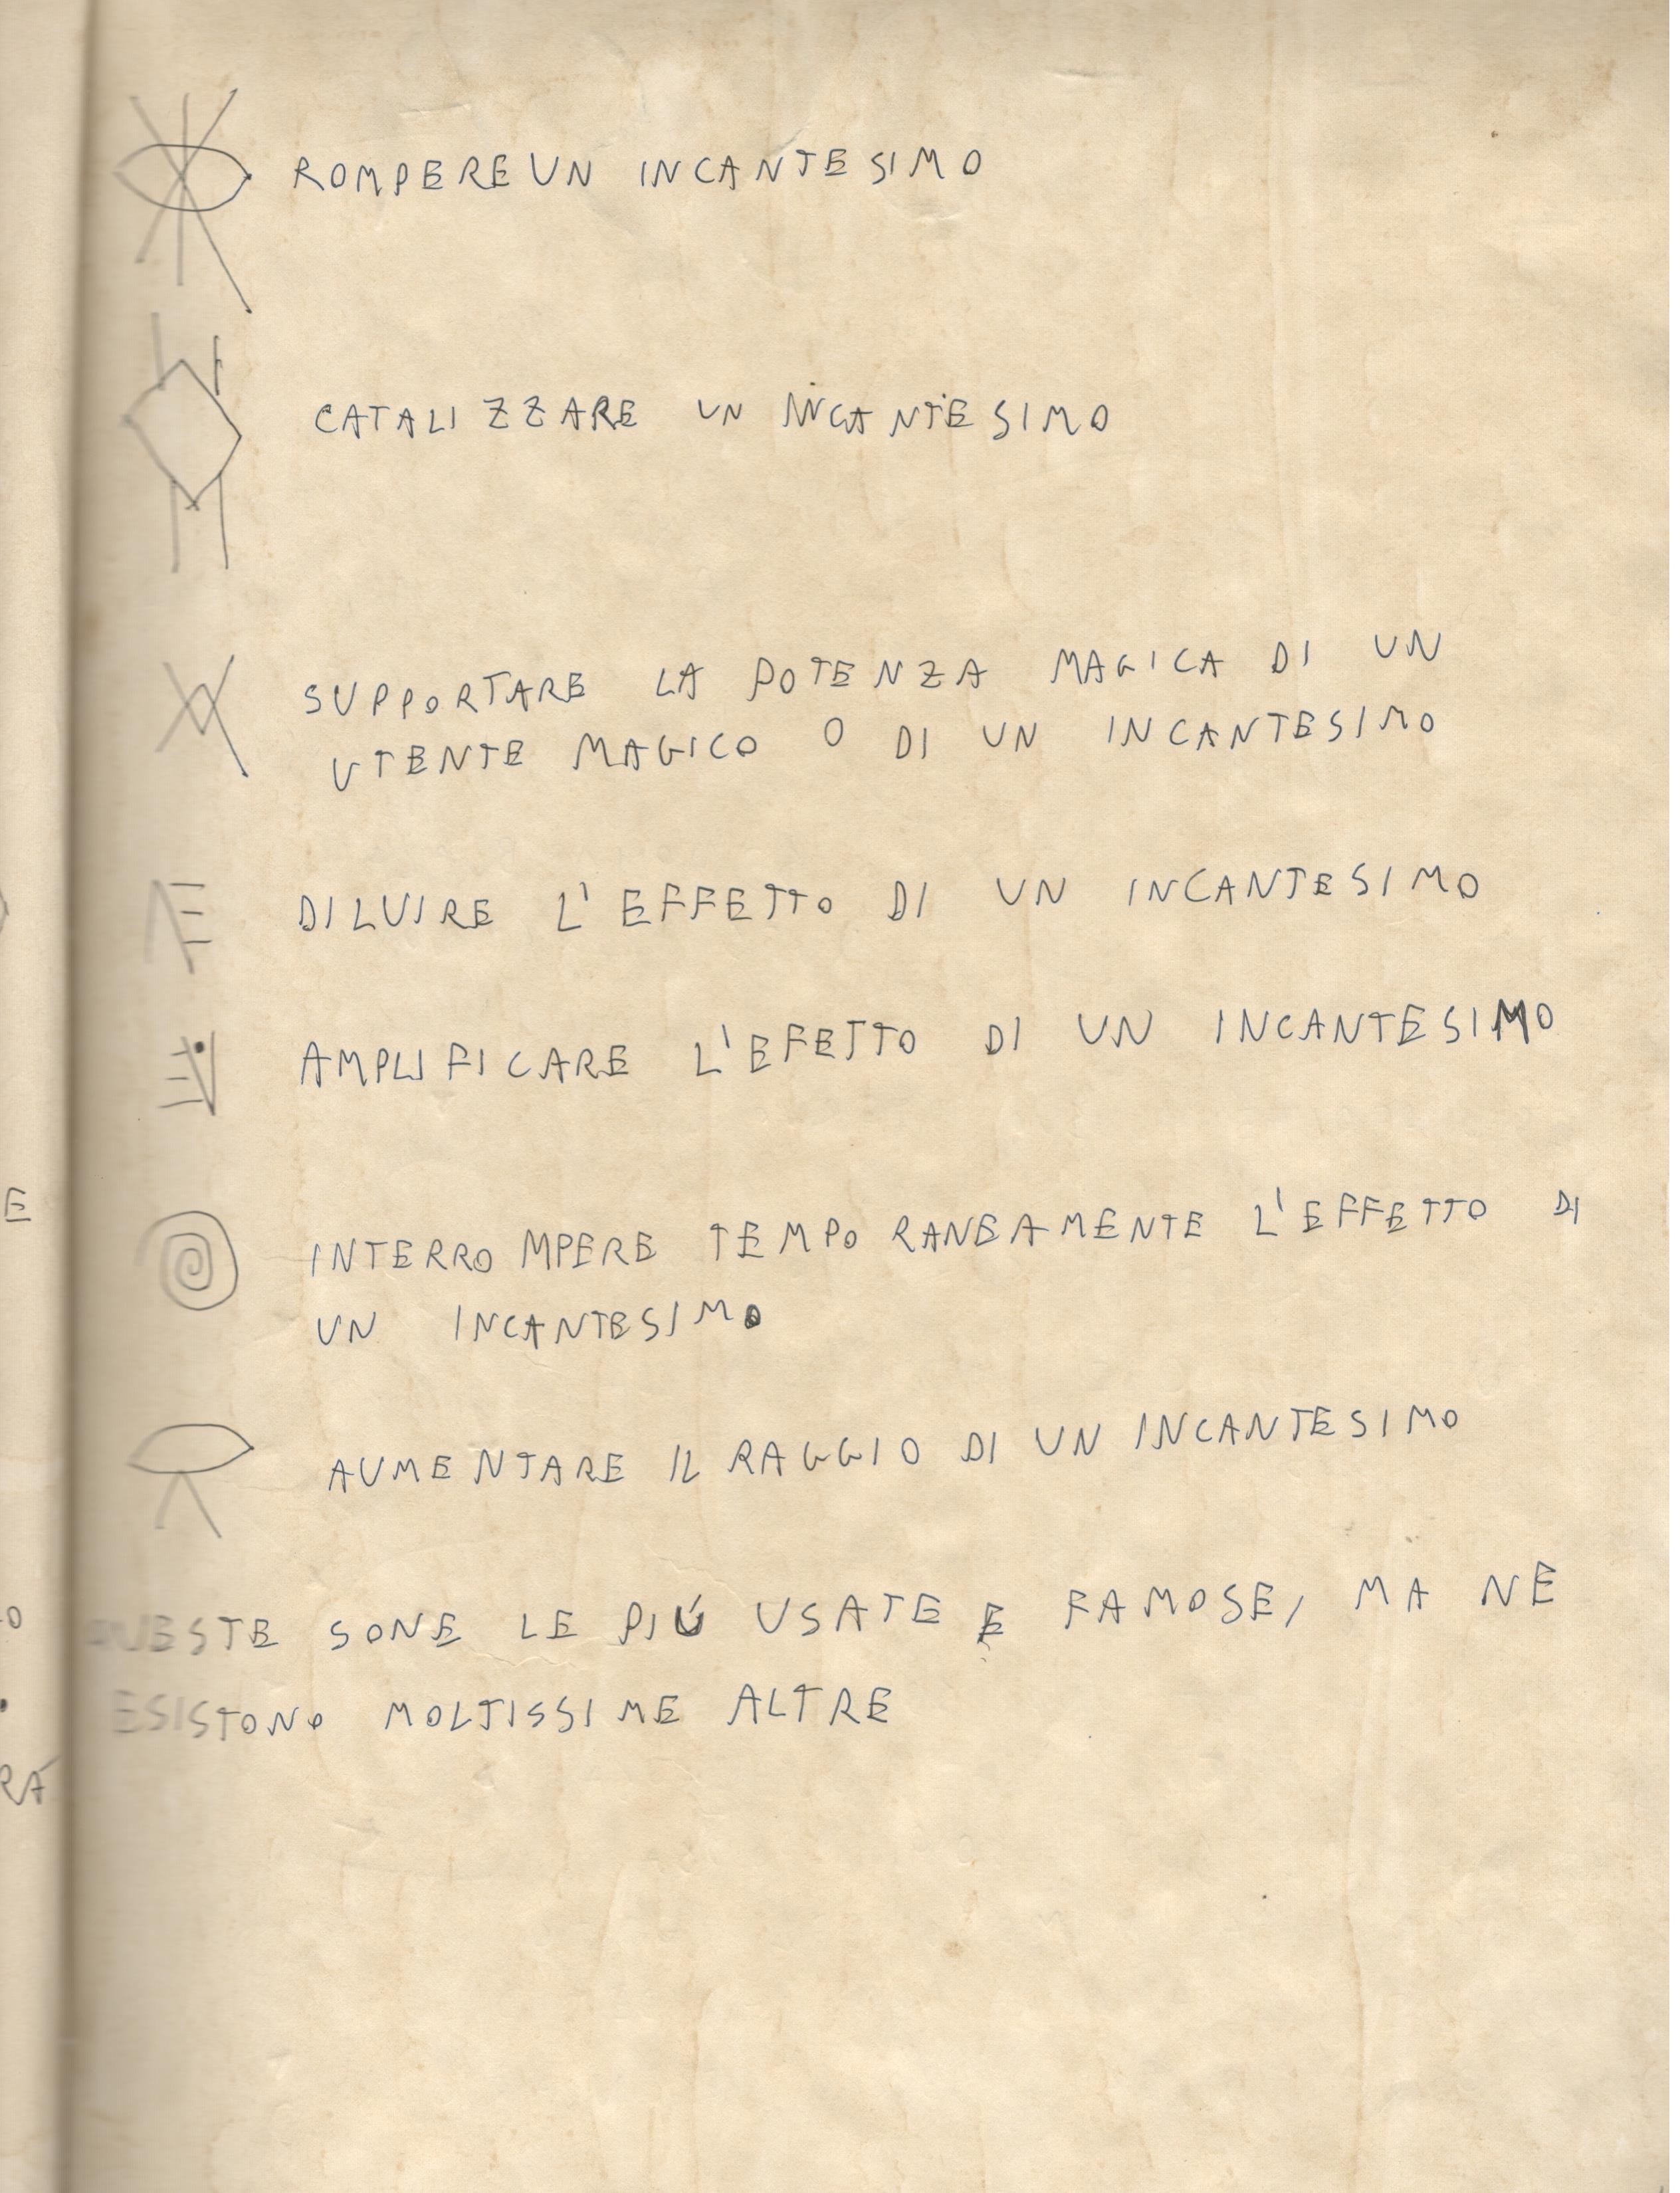 ROMPERE UN INCANTESIMO
CATALIZZARE UN INCANTESIMO
SUPPORTARE LA POTENZA MAGICA DI UN
UTENTE MAGICO O DI UN INCANTESIMO
DILUIRE L'EFFETTO DI UN INCANTESIMO
AMPLIFICARE L'EFETTO DI UN INCANTESIMO
INTERROMPERE TEMPORANEAMENTE L'EFFETTO DI
UN INCANTESIMO
AUMENTARE IL RAGGIO DI UN INCANTESIMO
QUESTE SONE LE PIÚ USATE E FAMOSE, MA NE
ESISTONO MOLTISSIME ALTRE